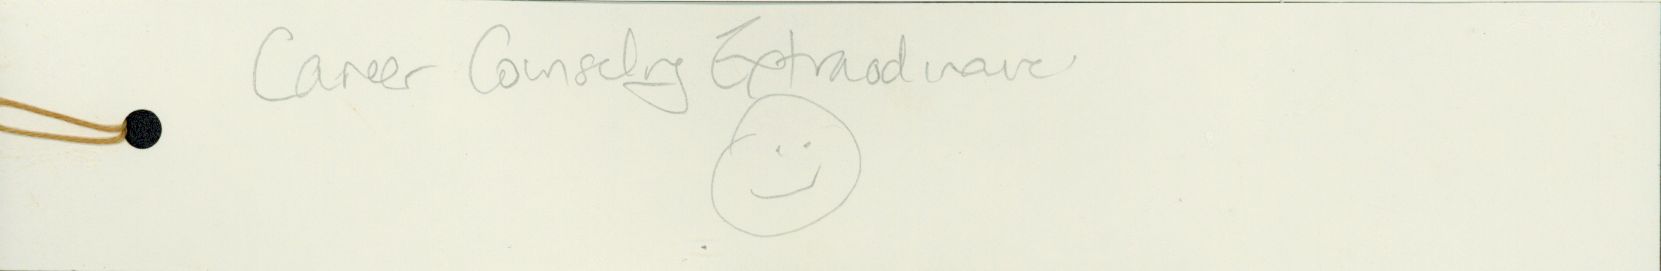 Career Counseling Extraodinare